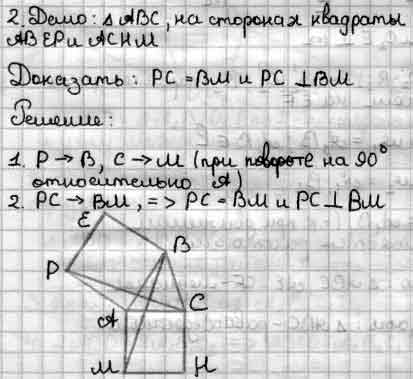 2. Дано: △ ABC, на сторонах квадраты
ABEP и ACHM
Доказать: PC = BM и PC ⊥ BM
Решение:
1. P → B, C → M (при повороте на 90°
относительно A)
2. PC → BM, => PC = BM и PC ⊥ BM
E
B
P
A
C
M
H